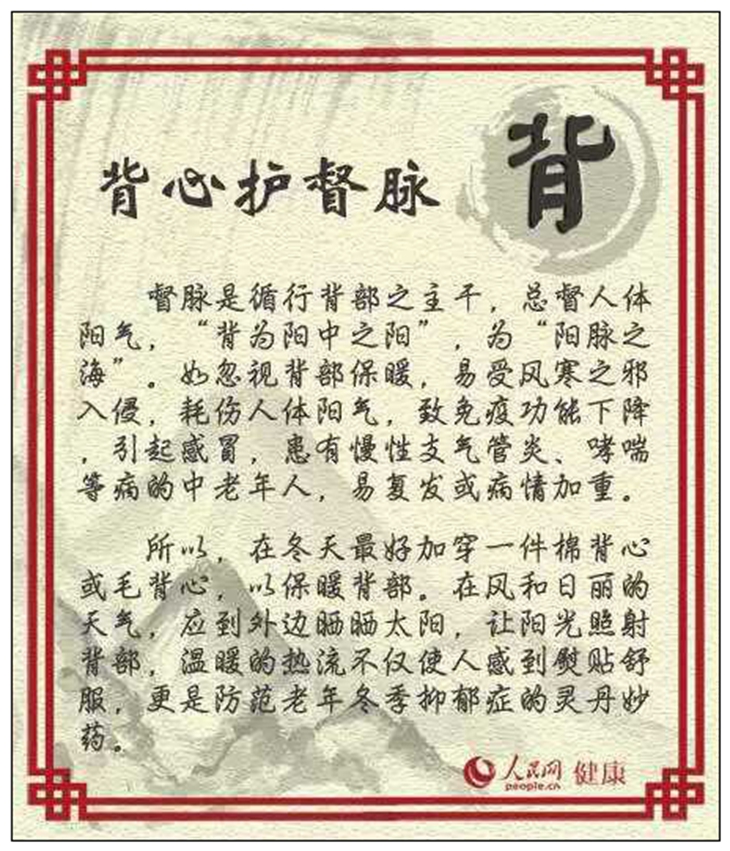 背
背心护督脉
督脉是循行背部之主干，总督人体
阳气，“背为阳中之阳”，为“阳脉之
海”。如忽视背部保暖，易受风寒之邪
入侵，耗伤人体阳气，致免疫功能下降
，引起感冒，患有慢性支气管炎、哮喘
等病的中老年人，易复发或病情加重。
所以，在冬天最好加穿一件棉背心
或毛背心，以保暖背部。在风和日丽的
天气，应到外边晒晒太阳，让阳光照射
背部，温暖的热流不仅使人感到熨贴舒
服，更是防范老年冬季抑郁症的灵丹妙
药。
人民网 健康
people.cn